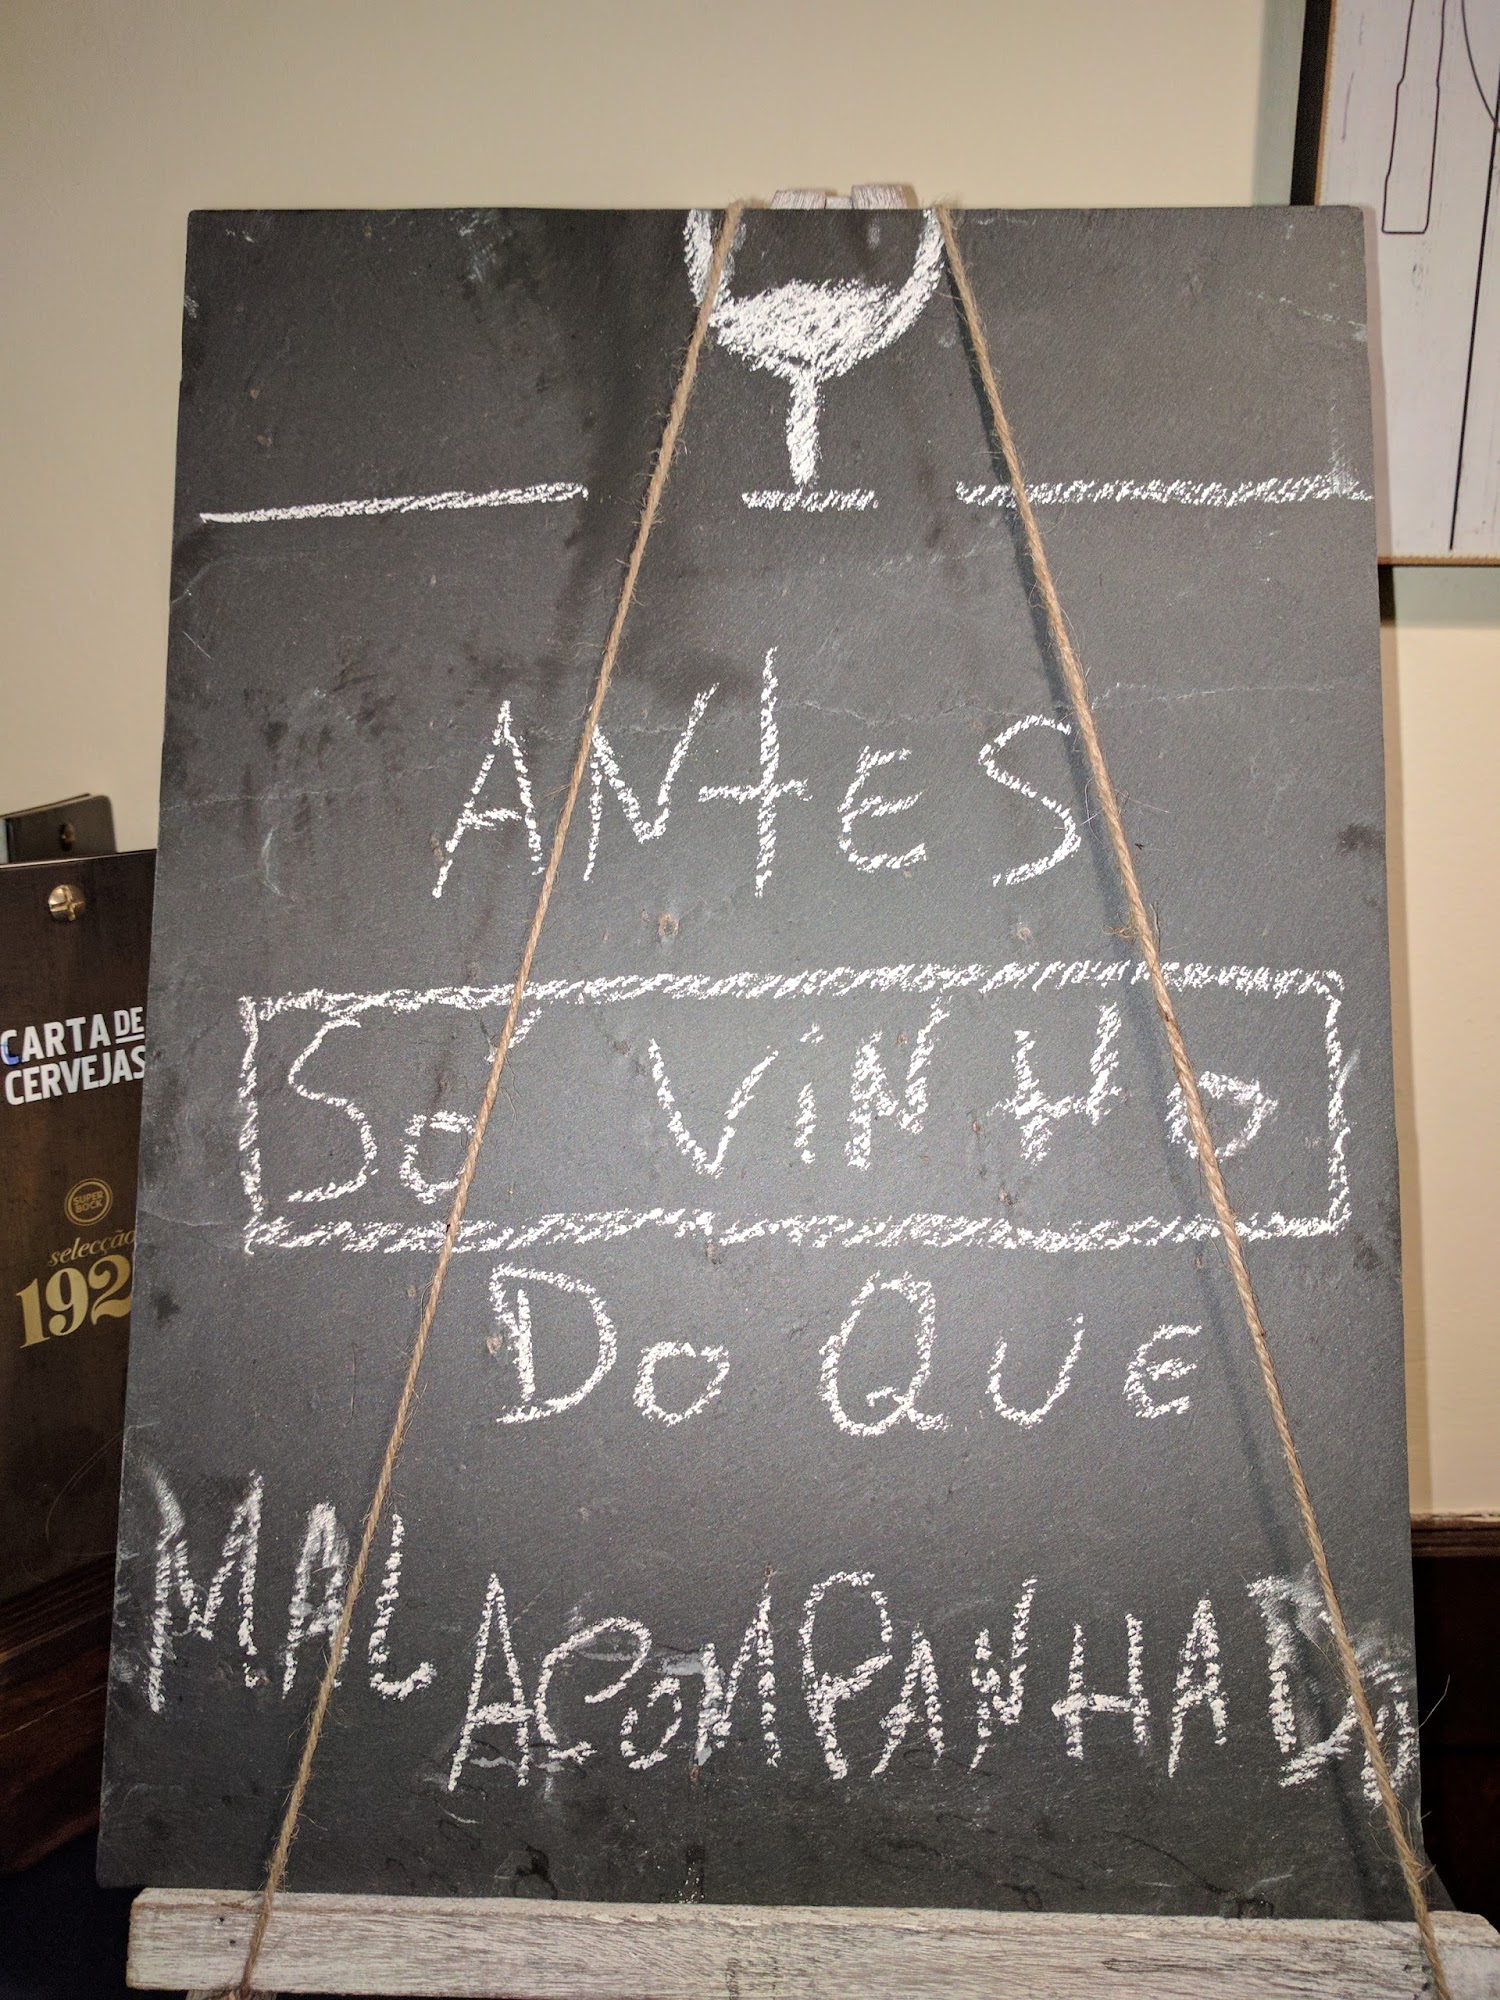 ANTES
SÓ VINHO
DO QUE
MAL ACOMPANHADO
CARTA DE
CERVEJAS
SUPER
BOCK
selecção
192